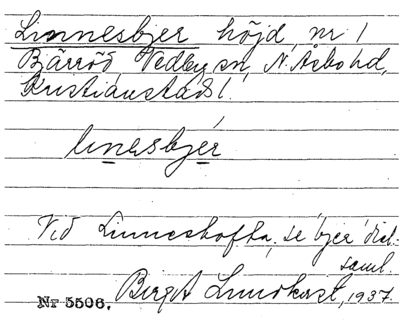 Linnesbjer höjd, nr 1
Bjärröd Vedby sn, N. Åsbo hd,
Kristianstads l.
linesbjer
Vid Linneshofta, se bjer dial.
saml.
Nr 5506. Birgit Lundkvist, 1937.